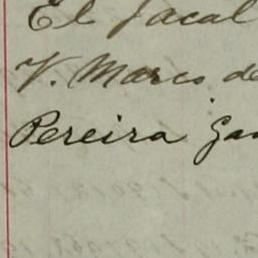 El Jacal
V. Marcs de
Pereira Gan